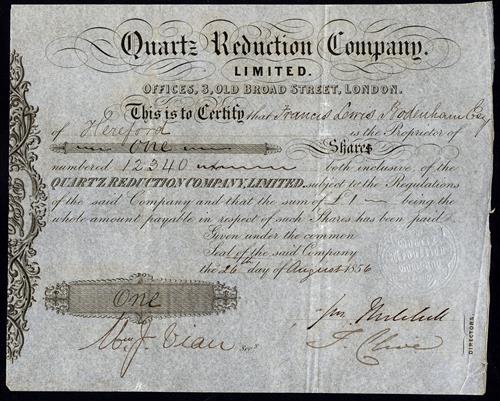 Quartz Reduction Company.
LIMITED.
OFFICES, 3, OLD BROAD STREET, LONDON.
This is to Certify that Francis Lewis Bodenham Esq
of Hereford is the Proprietor of
ONE Shares
numbered 12340 both inclusive of the
QUARTZ REDUCTION COMPANY, LIMITED, subject to the Regulations
of the said Company and that the sum of £1 being the
whole amount payable in respect of such Shares has been paid.
Given under the common
Seal of the said Company
the 26th day of August 1856
One
Wm. J. Vian Secy
Jno. Mitchell
T. Clive
DIRECTORS.